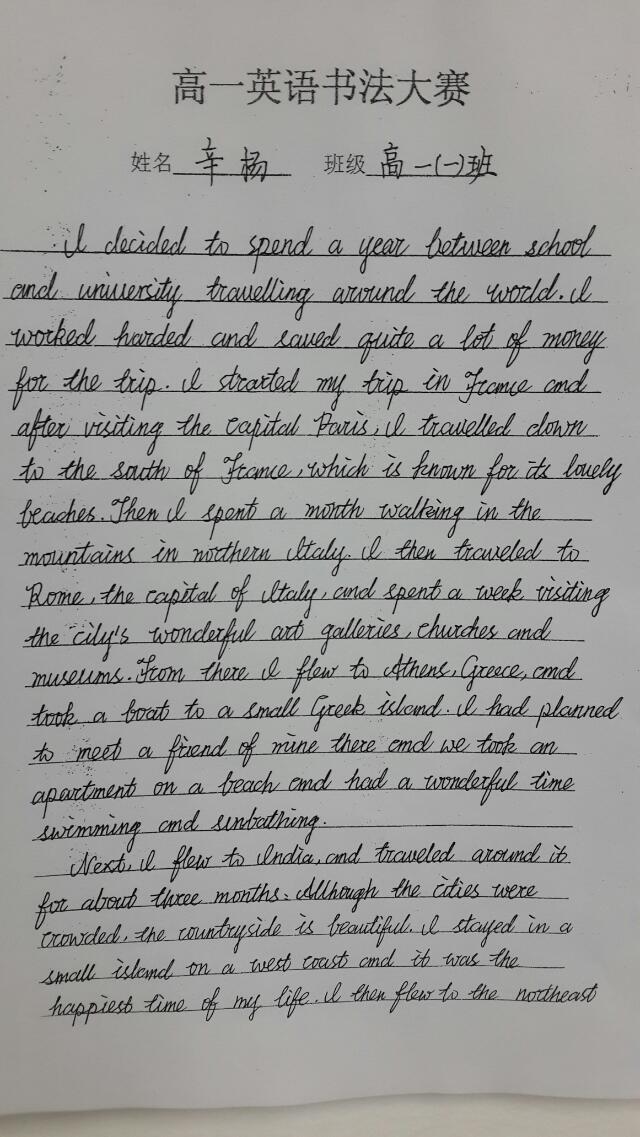 高一英语书法大赛
姓名 辛杨 班级 高一(一)班
I decided to spend a year between school
and university travelling around the world. I
worked harded and saved quite a lot of money
for the trip. I strarted my trip in France and
after visiting the capital Paris, I travelled down
to the south of France, which is known for its lovely
beaches. Then I spent a month walking in the
mountains in northern Italy. I then traveled to
Rome, the capital of Italy, and spent a week visiting
the city's wonderful art galleries, churches and
museums. From there I flew to Athens, Greece, and
took a boat to a small Greek island. I had planned
to meet a friend of mine there and we took an
apartment on a beach and had a wonderful time
swimming and sunbathing.
Next, I flew to India, and traveled around it
for about three months. Although the cities were
crowded, the countryside is beautiful. I stayed in a
small island on a west coast and it was the
happiest time of my life. I then flew to the northeast